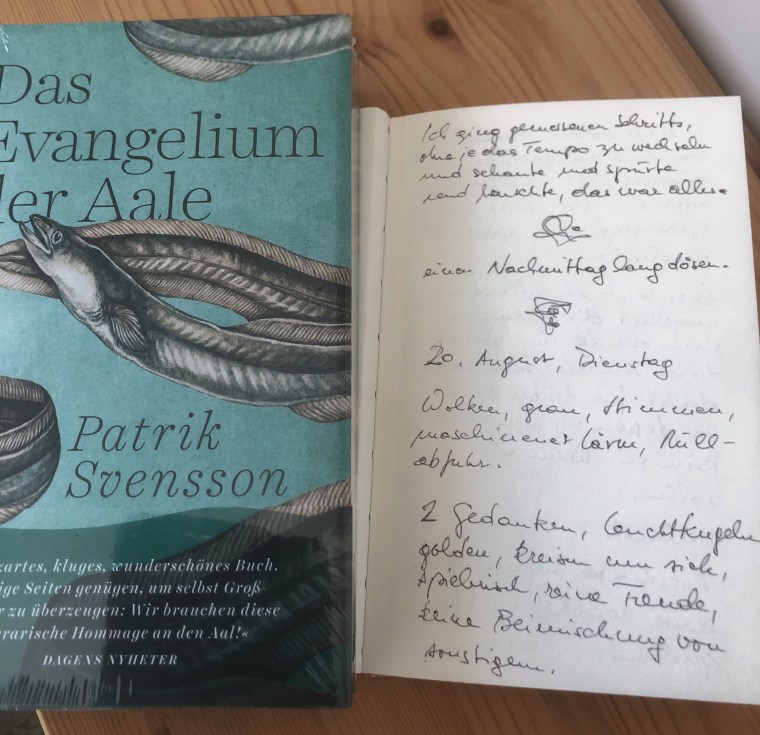 Das
Evangelium
der Aale
Patrik
Svensson
zartes, kluges, wunderschönes Buch.
ige Seiten genügen, um selbst Groß-
r zu überzeugen: Wir brauchen diese
erarische Hommage an den Aal!«
DAGENS NYHETER
Ich ging gemessenen Schritts,
ohne je das Tempo zu wechseln
und schaute und spürte
und lauschte, das war alles.
einen Nachmittag lang dösen.
20. August, Dienstag
Wolken, grau, Stimmen,
maschineller Lärm, Müll-
abfuhr.
2 Gedanken, Leuchtkugeln
golden, kreisen um sich,
spielerisch, reine Freude,
keine Beimischung von
sonstigem.